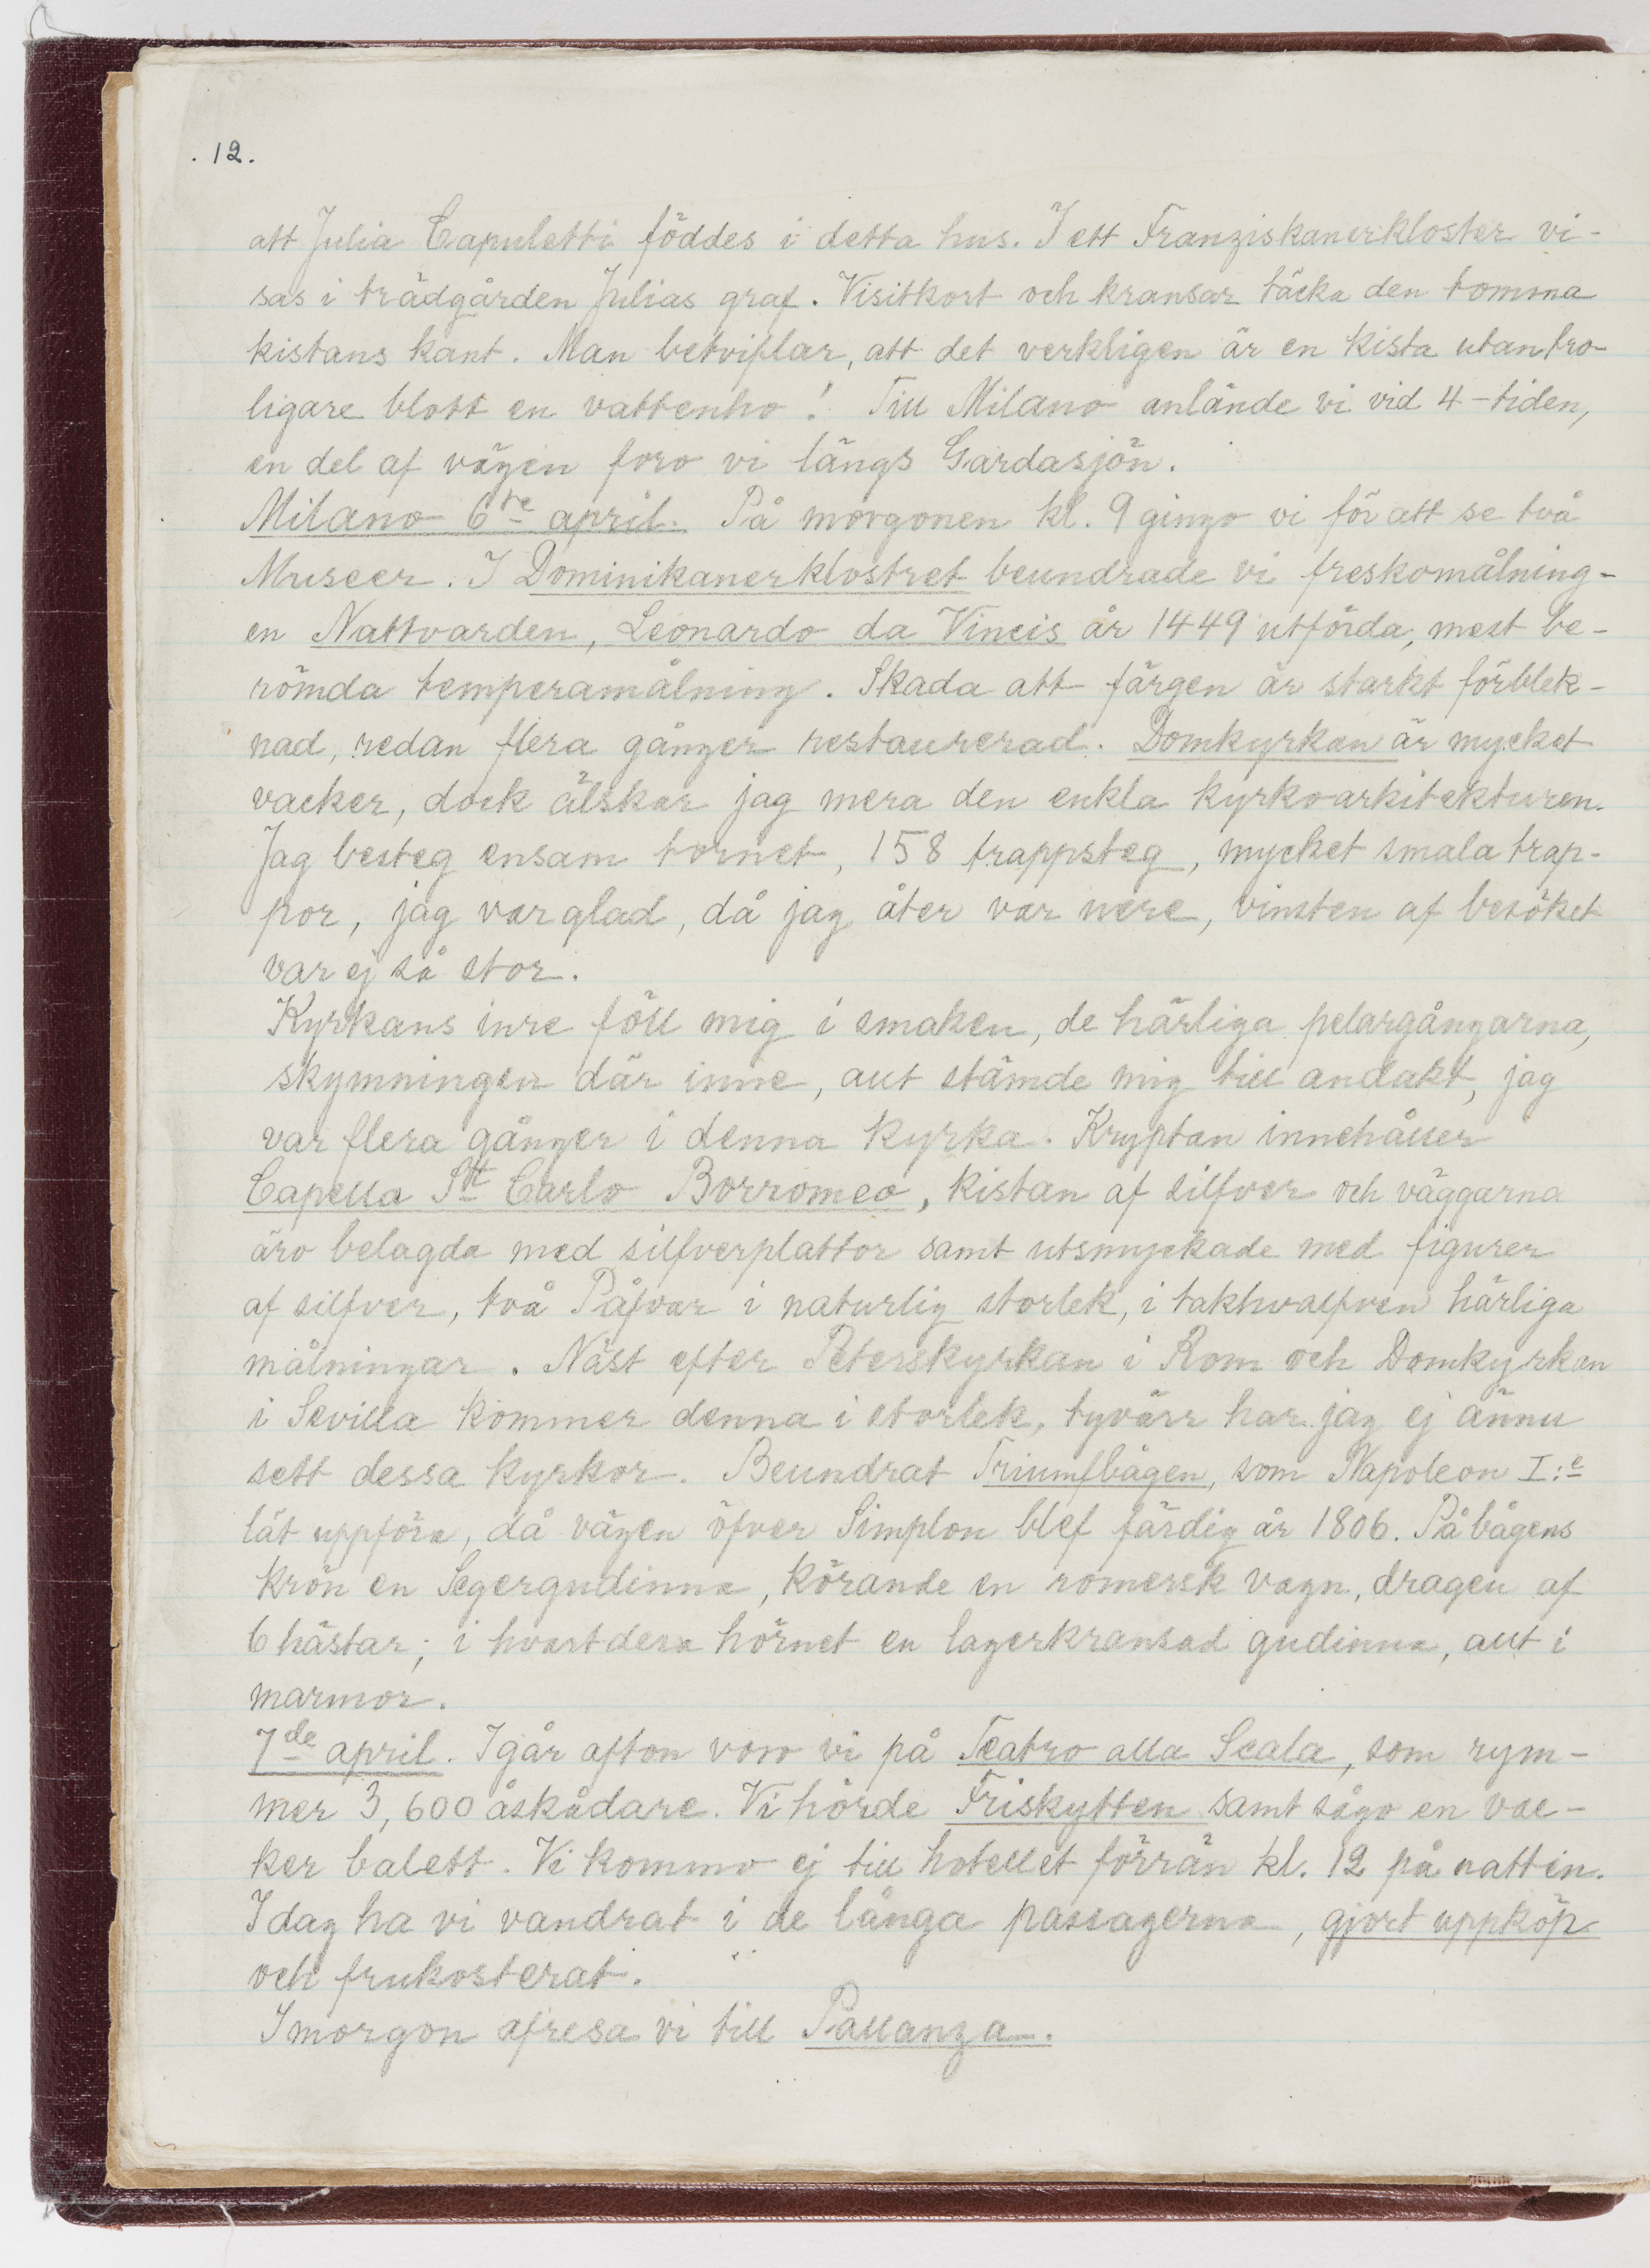 . 12.
att Julia Capuletti föddes i detta hus. I ett Franziskanerkloster vi-
sas i trädgården Julias graf. Visitkort och kransar täcka den tomma
kistans kant. Man betviflar, att det verkligen är en kista utan tro-
ligare blott en vattenho! Till Milano anlände vi vid 4-tiden,
en del af vägen foro vi längs Gardasjön.
Milano 6te april. På morgonen kl. 9 gingo vi för att se två
Museer. I Dominikanerklostret beundrade vi freskomålning-
en Nattvarden, Leonardo da Vincis år 1449 utförda, mest be-
römda temperamålning. Skada att färgen är starkt förblek-
nad, redan flera gånger restaurerad. Domkyrkan är mycket
vacker, dock älskar jag mera den enkla kyrkoarkitekturen.
Jag besteg ensam tornet, 158 trappsteg, mycket smala trap-
por, jag var glad, då jag åter var nere, vinsten af besöket
var ej så stor.
Kyrkans inre föll mig i smaken, de härliga pelargångarna,
skymningen där inne, allt stämde mig till andakt, jag
var flera gånger i denna kyrka. Kryptan innehåller
Capella St Carlo Borromeo, kistan af silfver och väggarna
äro belagda med silfverplattor samt utsmyckade med figurer
af silfver, två Påfvar i naturlig storlek, i takhvalfven härliga
målningar. Näst efter Peterskyrkan i Rom och Domkyrkan
i Sevilla kommer denna i storlek, tyvärr har jag ej ännu
sett dessa kyrkor. Beundrat Triumfbågen, som Napoleon I:e
lät uppföra, då vägen öfver Simplon blef färdig år 1806. På bågens
krön en Segergudinna, körande en romersk vagn, dragen af
6 hästar; i hvartdera hörnet en lagerkransad gudinna, allt i
marmor.
7de april. Igår afton voro vi på Teatro alla Scala, som rym-
mer 3,600 åskådare. Vi hörde Friskytten samt sågo en vac-
ker balett. Vi kommo ej till hotellet förrän kl. 12 på natten.
Idag ha vi vandrat i de långa passagerna, gjort uppköp
och frukosterat.
Imorgon afresa vi till Pallanza.